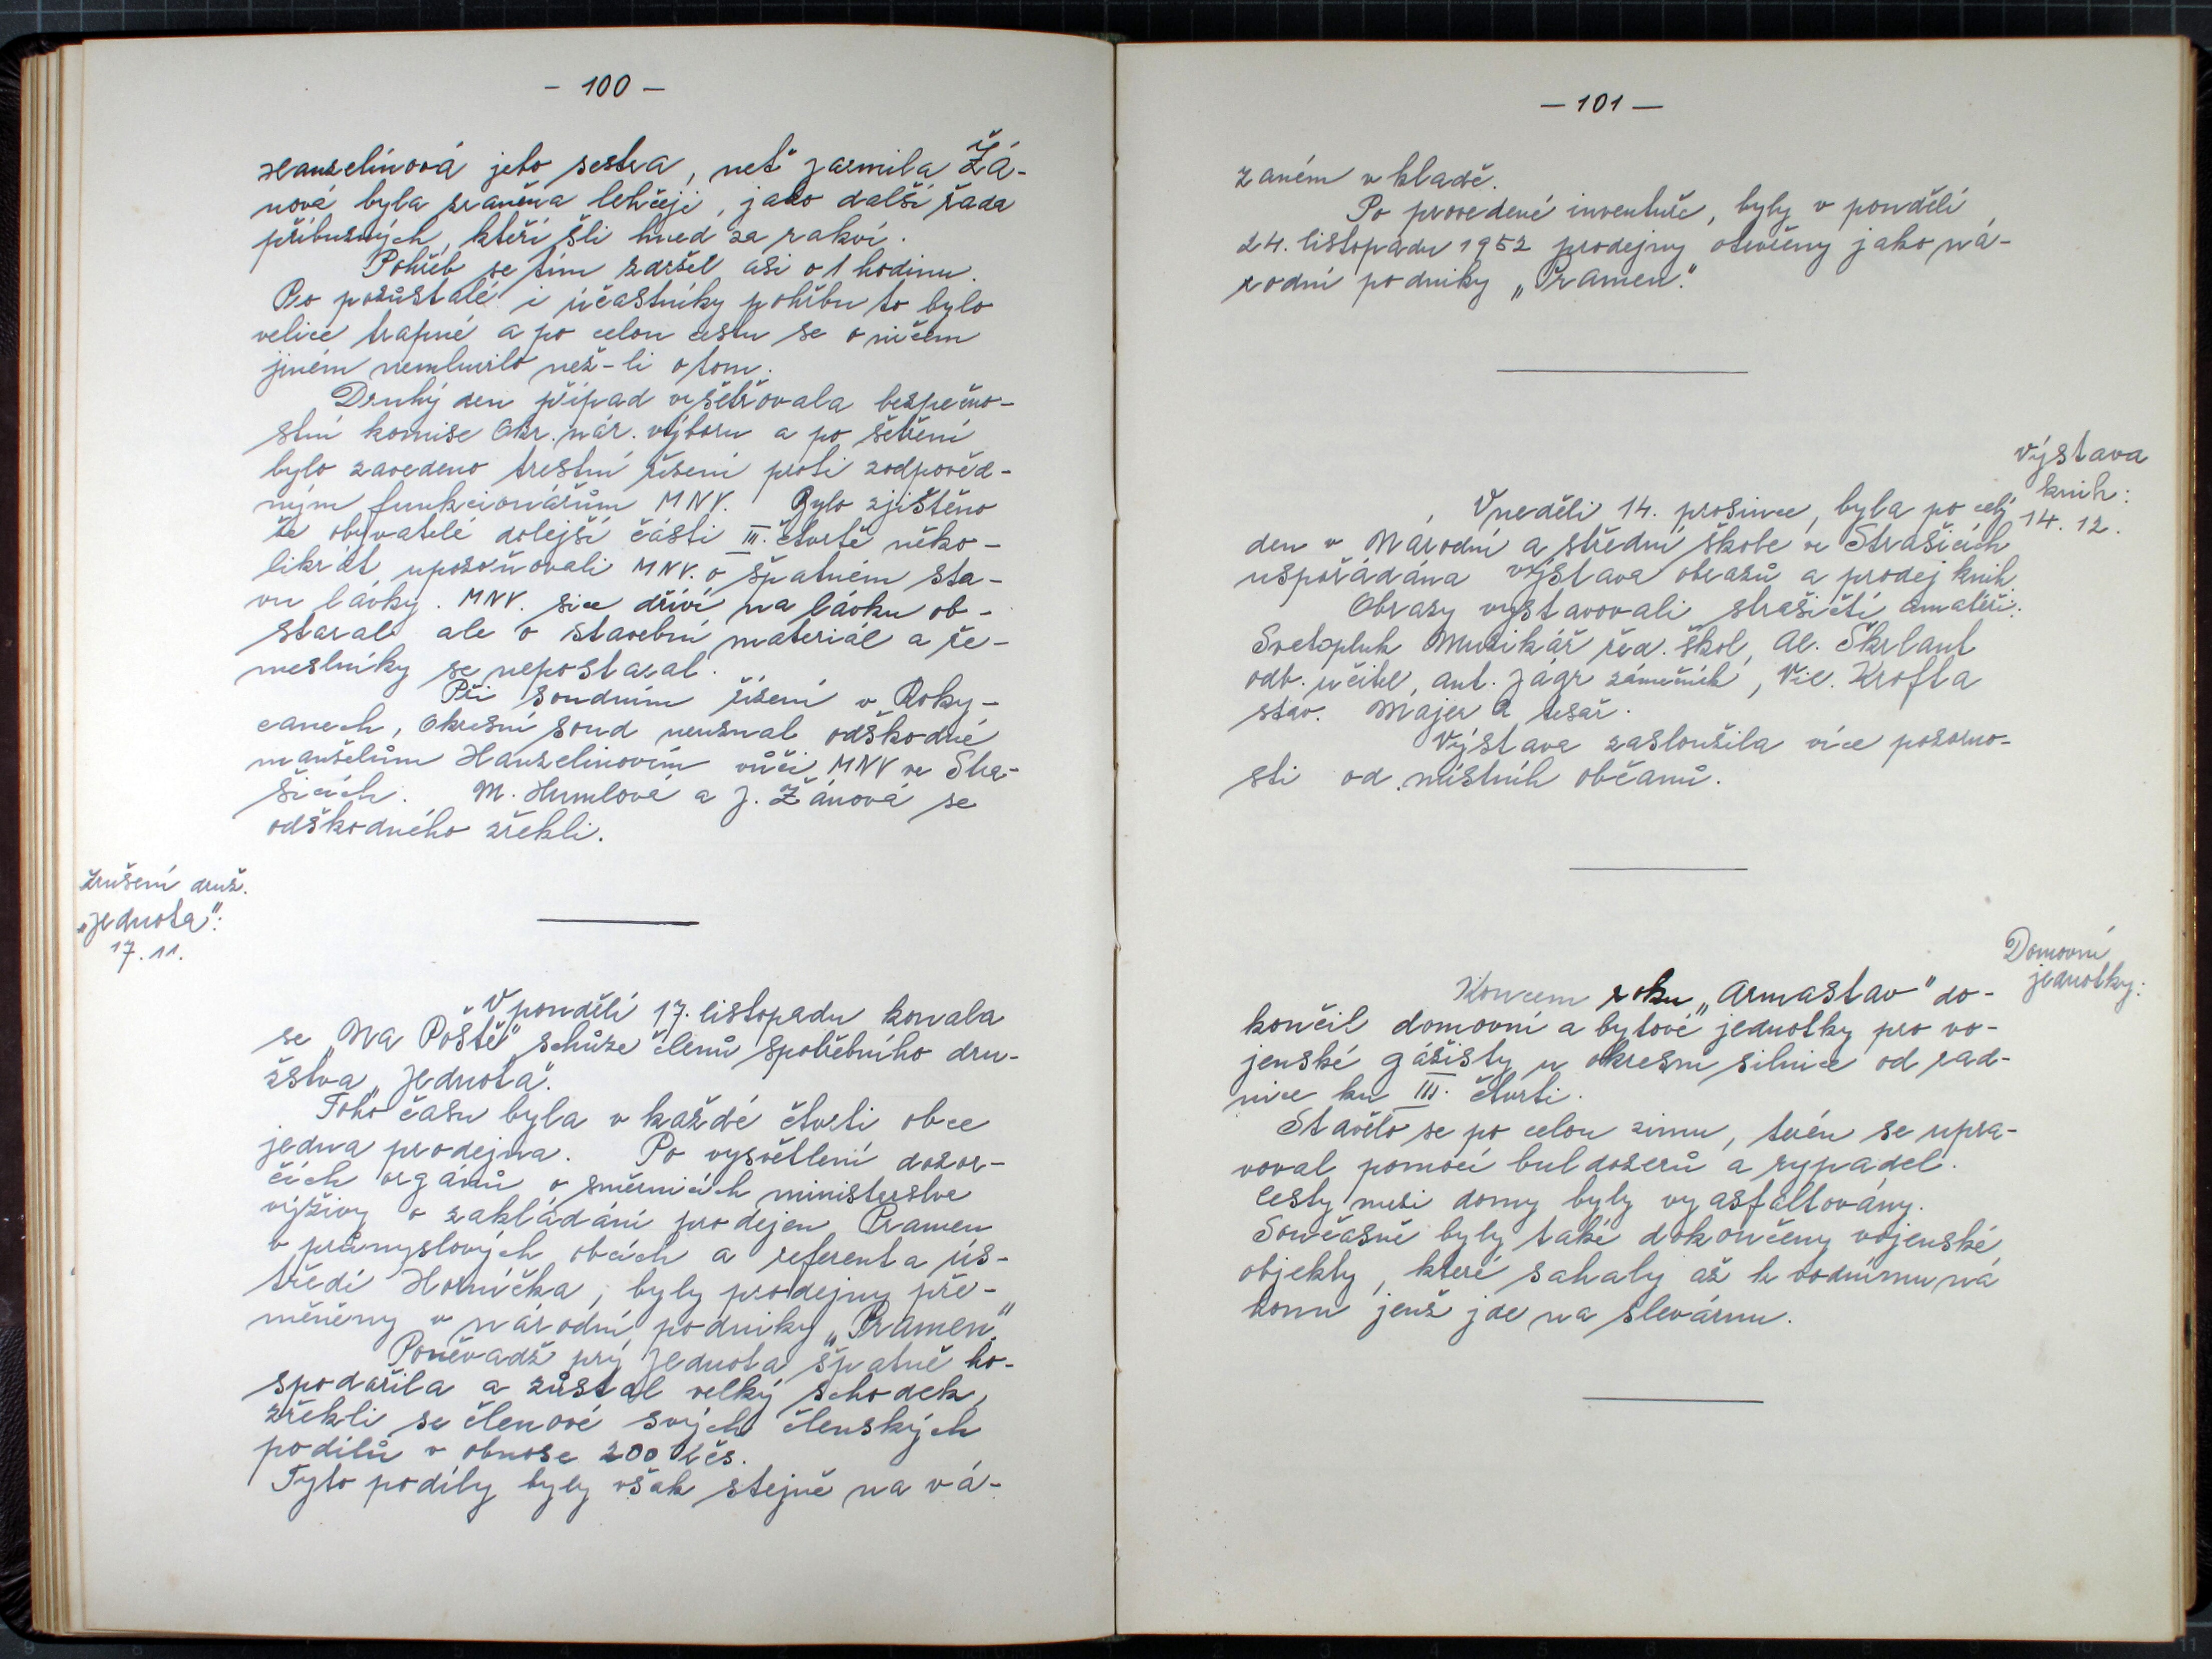 - 100 -
Hanzelínová jeho sestra, neť Jarmila Žá-
nová byla zraněna lehčeji, jako další řada
příbuzných, kteří šli hned za rakví.
Pohřeb se tím zdržel asi o 1 hodinu.
Pro pozůstalé i účastníky pohřbu to bylo
velice trapné a po celou cestu se o ničem
jiném nemluvilo než-li o tom.
Druhý den případ vyšetřovala bezpečno-
stní komise Okr. nár. výboru a po šetření
bylo zavedeno trestní řízení proti zodpověd-
ným funkcionářům MNV. Bylo zjištěno
že obyvatelé dolejší části III. čtvrtě něko-
likrát upozorňovali MNV. o špatném sta-
vu lávky. MNV. sice dříví na lávku ob-
staral ale o stavební materiál a ře-
meslníky se nepostaral.
Při soudním řízení v Roky-
canech, Okresní soud neuznal odškodné
manželům Hanzelinovím vůči MNV ve Stra-
šicích. M. Humlová a J. Žánová se
odškodného zřekli.
Zrušení druž.
„Jednota":
17. 11.
V pondělí 17. listopadu konala
se „Na Poště" schůze členů spotřebního dru-
žstva „Jednota".
Toho času byla v každé čtvrti obce
jedna prodejna. Po vysvětlení dozor-
čích orgánů o směrnicích ministerstva
výživy o zakládání prodejen Pramen
v průmyslových obcích a referenta ús-
tředí Horníčka, byly prodejny pře-
měněny v národní podniky „Pramen."
Poněvadž prý Jednota špatně ho-
spodařila a zůstal velký schodek,
zřekli se členové svých členských
podílů v obnose 200 Kčs.
Tyto podíly byly však stejně na vá-
- 101 -
zaném vkladě.
Po provedené inventuře, byly v pondělí
24. listopadu 1952 prodejny otevřeny jako ná-
rodní podniky „Pramen."
Výstava
knih:
14. 12.
V neděli 14. prosince, byla po celý
den v Národní a střední škole ve Strašicích
uspořádána výstava obrazů a prodej knih.
Obrazy vystavovali strašičtí amatéři:
Svetopluk Muzikář řed. škol, Al. Škrlant
odb. učitel, Ant. Jágr zámečník, Vic. Krofta
stav. Majer a tesař.
Výstava zasloužila více pozorno-
sti od místních občanů.
Domovní
jednotky:
Koncem roku „Armastav" do-
končil domovní a bytové jednotky pro vo-
jenské gážisty u okresní silnice od rad-
nice ku III. čtvrti.
Stavělo se po celou zimu, terén se upra-
voval pomocí buldozerů a rypadel.
Cesty mezi domy byly vyasfaltovány.
Současně byly také dokončeny vojenské
objekty, které sahaly až k vodnímu ná
honu jenž jde na slevárnu.